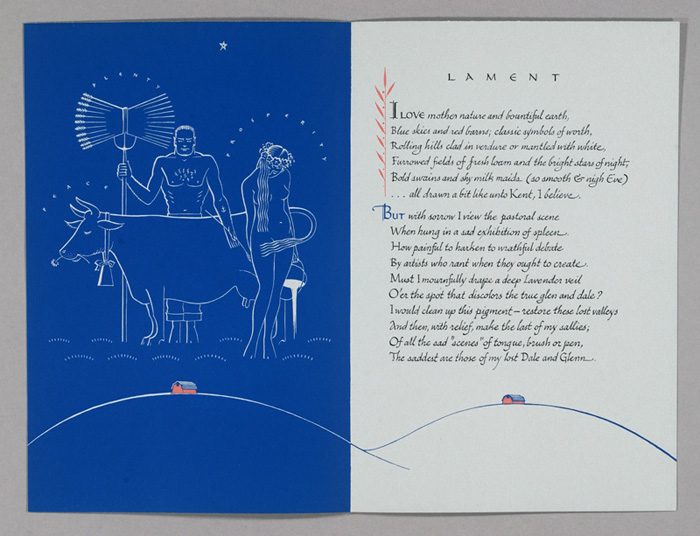 PLENTY
PROSPERITY
PEACE
LAMENT
I LOVE mother nature and bountiful earth,
Blue skies and red barns; classic symbols of worth,
Rolling hills clad in verdure or mantled with white,
Furrowed fields of fresh loam and the bright stars of night;
Bold swains and shy milk maids (so smooth & nigh Eve)
. . . all drawn a bit like unto Kent, I believe.
BUT with sorrow I view the pastoral scene
When hung in a sad exhibition of spleen.
How painful to harken to wrathful debate
By artists who rant when they ought to create.
Must I mournfully drape a deep Lavender veil
O'er the spot that discolors the true glen and dale?
I would clean up this pigment – restore these lost valleys
And then, with relief, make the last of my sallies;
Of all the sad "scenes" of tongue, brush or pen,
The saddest are those of my lost Dale and Glenn.